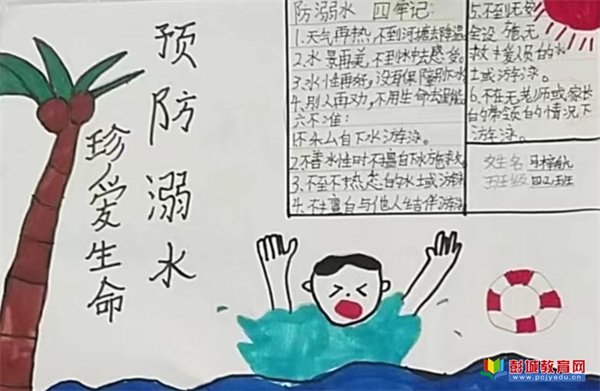 预防溺水
珍爱生命
防溺水 四牢记:
1.天气再热,不到河塘去降温
2.水景再美,不到水中去感受
3.水性再好,没有保障防水
4.别人再劝,不用生命去逞能
六不准:
1.不私自下水游泳。
2.不善水性时不擅自下水施救
3.不到不熟悉的水土或游泳
4.不擅自与他人结伴游泳
5.不到无安
全设施无
救援人员的水
土或游泳。
6.不在无老师或家长
的带领的情况下
游泳。
姓名 马梓航
班级 四2班
彭城教育网
www.pcjyedu.cn